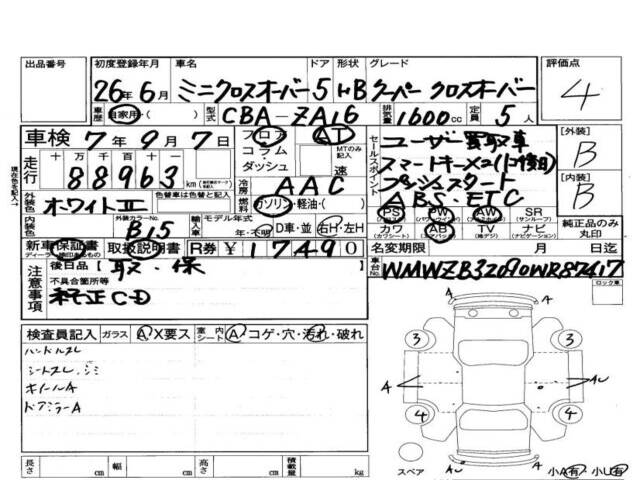 出品番号 初度登録年月 車名 ドア 形状 グレード 評価点
26年6月 ミニクロスオーバー 5 HB クーパー クロスオーバー 4
車歴 自家用・( ) 型式 CBA-ZA16 排気量 1600cc 定員 5人
車検 7年9月7日 フロア AT セールスポイント ユーザー買取車 [外装] B
走行 十万千百十一 コラム・ダッシュ MTのみ記入 速 スマートキー×2
88963 km 冷房 AAC プッシュスタート [内装] B
外装色 ホワイトII 燃料 ガソリン・軽油・( ) ABS・ETC
現在色を記入 外装カラーNo. 輸入車 モデル年式 PS PW AW SR 純正品のみ丸印
内装色 B15 年・不明 D車・並 右H・左H カワ AB TV ナビ
新車保証書 取扱説明書 R券 ¥17490 名変期限 月 日迄
注意事項 後日品 取・保 車台No. WMWZB32090WR87417
不具合箇所等 ロック車
純正CD
検査員記入 ガラス A X要ス 室内シート A コゲ・穴・汚れ・破れ
ハンドルスレ
シートスレ、シミ
ホイールA
ドアミラーA
A A
3 3
A AU
4 4
A AU A
長さ cm 幅 cm 高さ cm 積載量 kg スペア 小A有・小U有